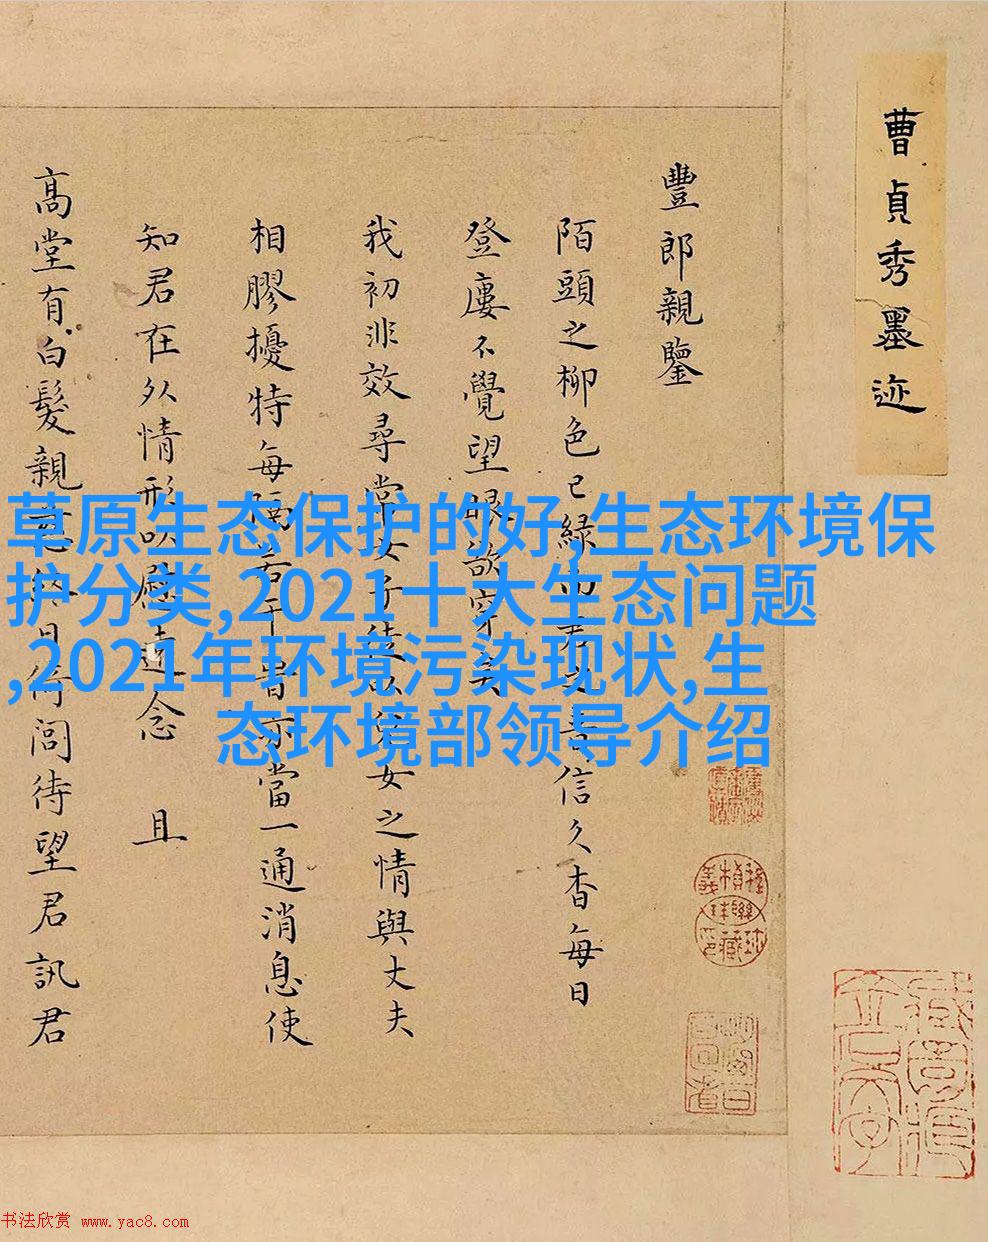 曹貞秀墨迹
豐郎親鑒
陌頭之柳色已緑而君之音信久杳每日
登廔不覺望眼欲穿矣
我初非效尋常女子徒以兒女之情與丈夫
相膠擾特每隔若干晷亦當一通消息使
知君在外情形以慰遠念 且
高堂有白髮親老終日倚閭待望君訊君
草原生态保护的好,生态环境保
护分类,2021十大生态问题
,2021年环境污染现状,生
态环境部领导介绍
书法欣赏 www.yac8.com